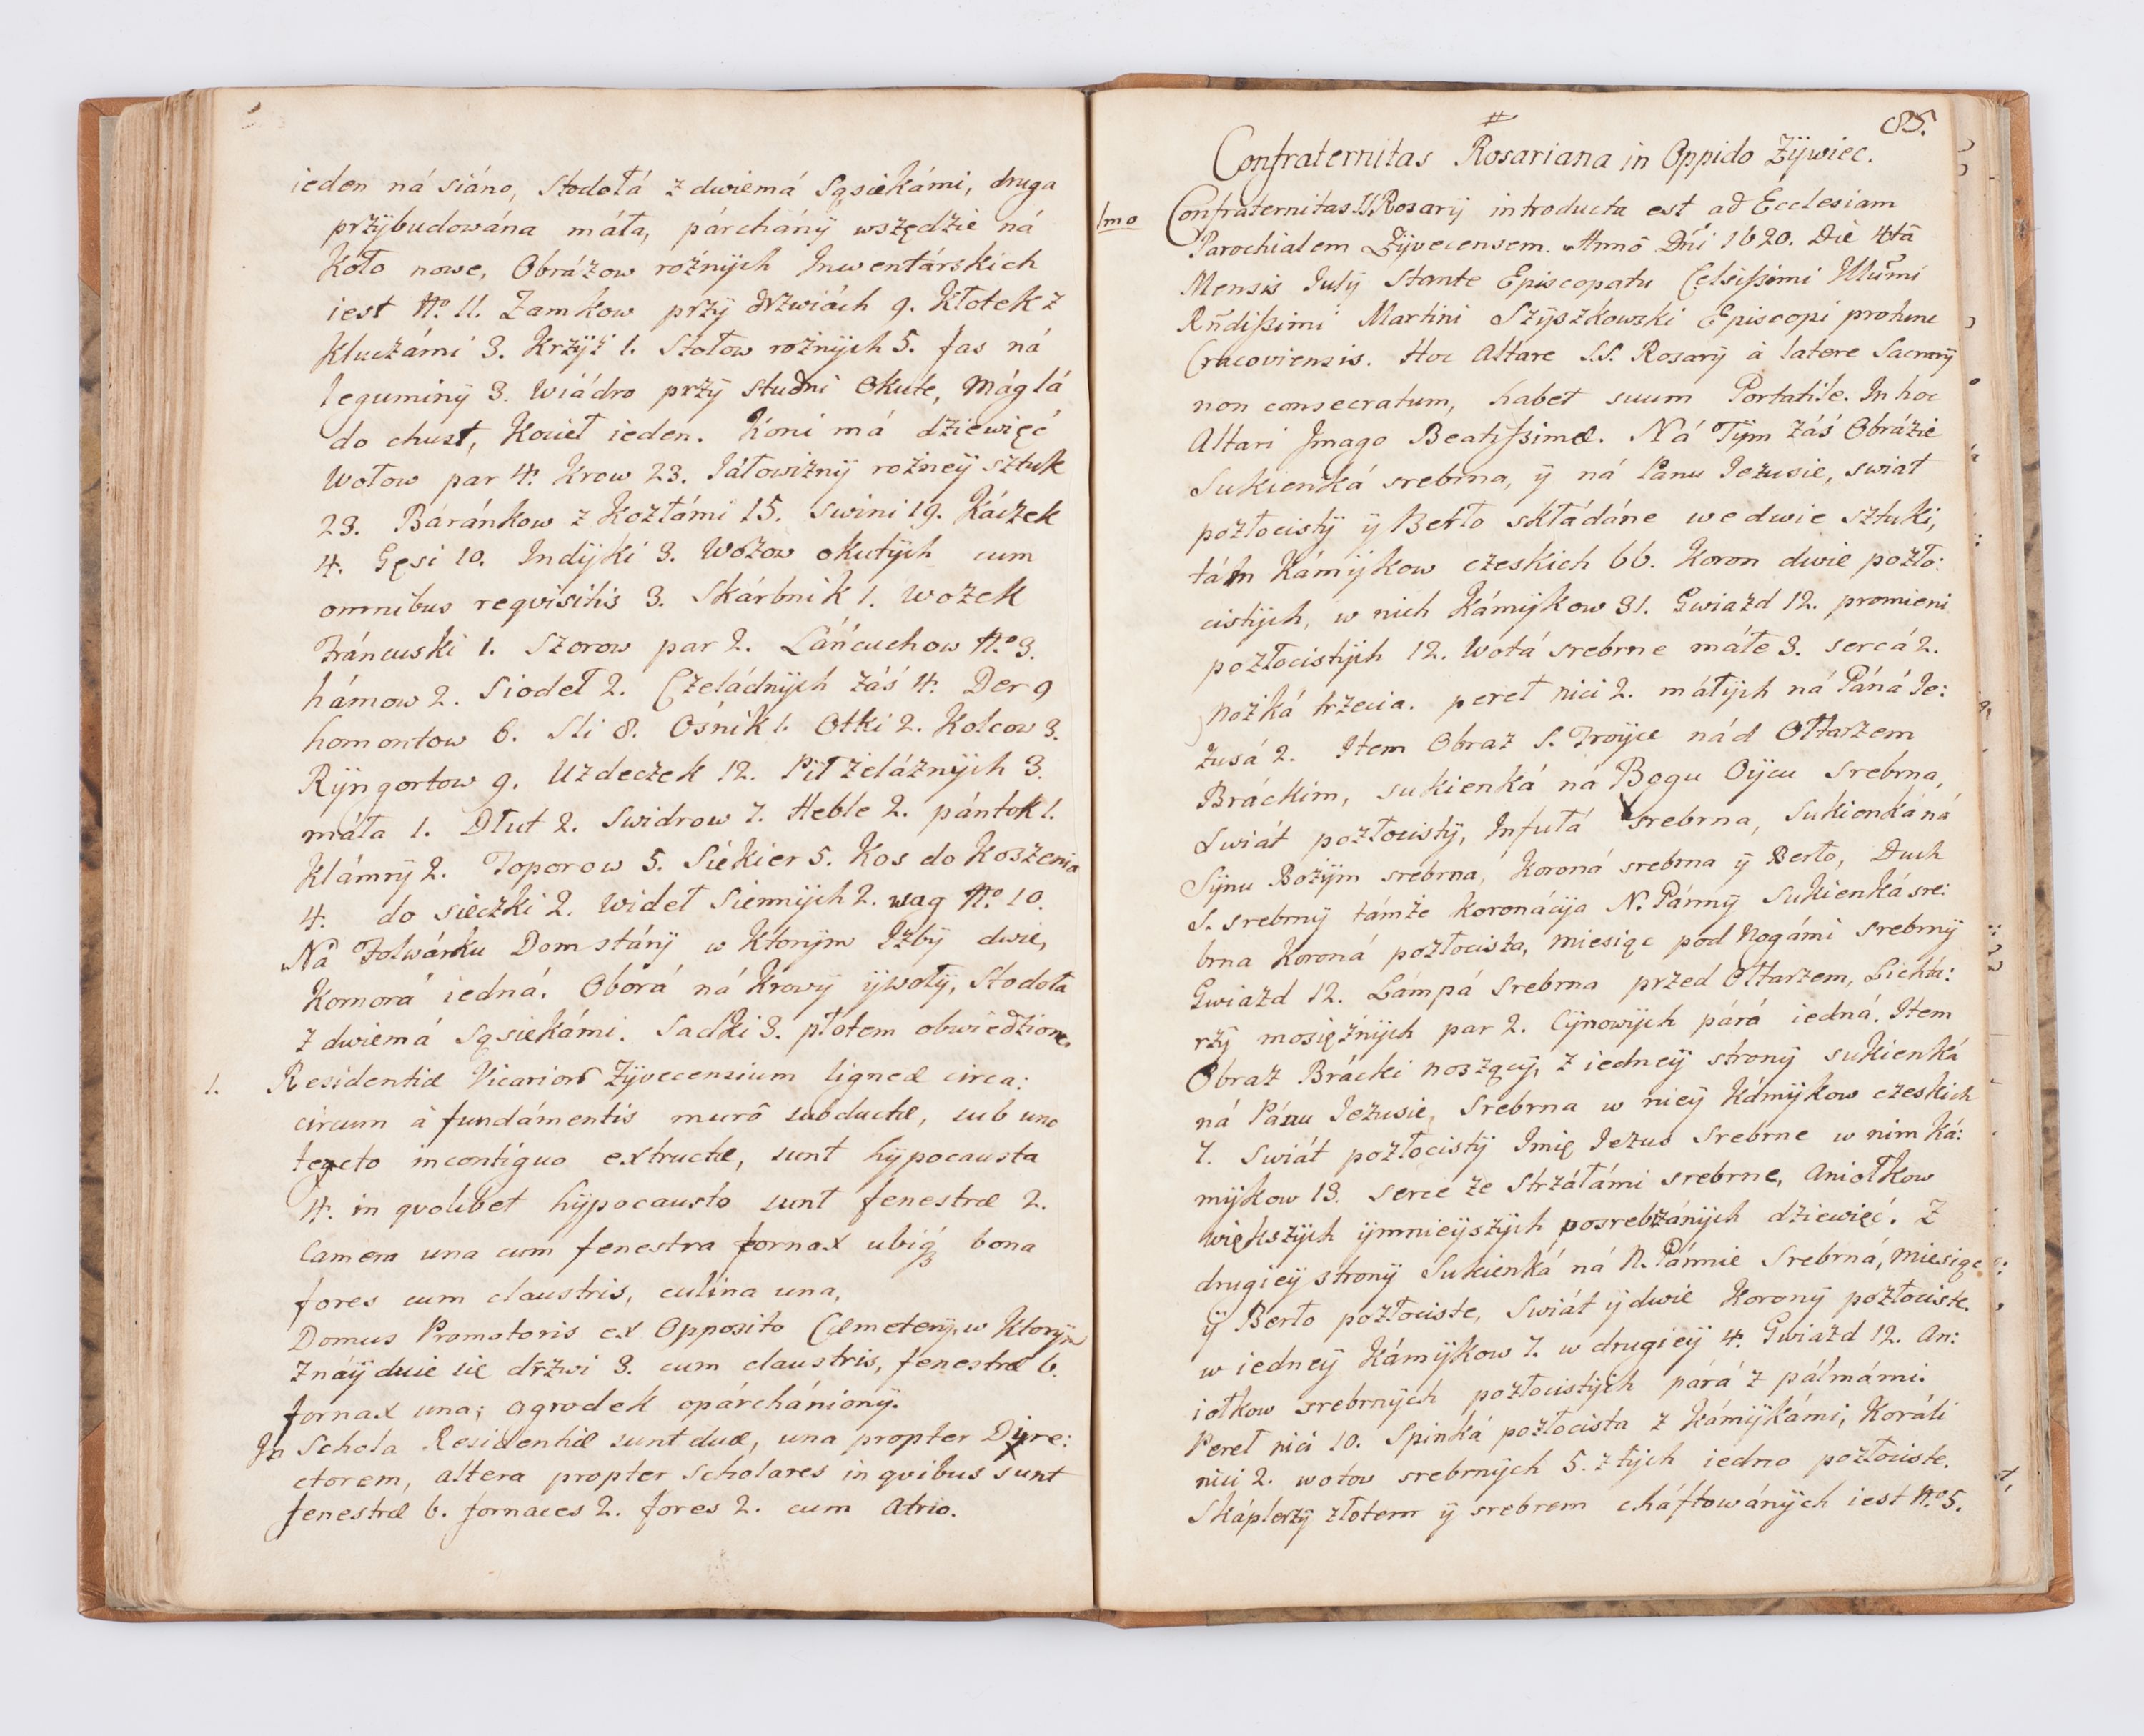 ieden ná siáno, Stodołá z dwiemá Sąsiekámi, druga
przÿbudowána máła, párchánÿ wszędzie ná
Koło nowe, Obrázow rożnÿch Inwentárskich
iest No. 11. Zamkow przÿ drzwiách 9. Kłotek z
Kluczámi 3. Krzÿż 1. Stołow rożnÿch 5. fas ná
leguminÿ 3. Wiádro przÿ studni Okute, Máglá
do chust, Kocieł ieden. Koni má dziewięć
Wołow par 4. Krow 23. Jáłowiznÿ rożneÿ sztuk
23. Báránkow z Kozłámi 15. Swini 19. Káczek
4. Gęsi 10. Indÿki 3. Wozow okutÿch cum
omnibus reqvisitis 3. Skárbnik 1. Wozek
Fráncuski 1. Szorow par 2. Láńcuchow No. 3.
hámow 2. Siodeł 2. Czeládnÿch záś 4. Der 9
homontow 6. Sli 8. Ośnik 1. Otki 2. Kolcow 3.
Rÿngortow 9. Uzdeczek 12. Pił żeláznÿch 3.
máła 1. Dłut 2. Swidrow 7. Heble 2. pántok 1.
Klámrÿ 2. Toporow 5. Siekier 5. Kos do Koszenia
4. do sieczki 2. Wideł Siennÿch 2. wag No. 10.
Ná Folwárku Dom stárÿ w Ktorÿm Izbÿ dwie,
Komorá iedná. Oborá ná Krowÿ ÿ wołÿ, Stodoła
z dwiemá Sąsiekámi. Sadki 3. płotem obwiedzione.
1. Residentiæ Vicariorũ Zÿvecensium ligneæ circa:
circum à fundámentis murô subductæ, sub uno
tecto incontiguo extructæ, sunt hÿpocausta
4. in qvolibet hÿpocausto sunt fenestræ 2.
Camera una cum fenestra fornax ubiq3 bona
fores cum claustris, culina una,
Domus Promotoris ex Opposito Cæmeterÿ, w Ktorÿm
Znaÿduie sie drzwi 3. cum claustris, fenestræ 6.
fornax una; Ogrodek opárchánionÿ.
In Schola Residentiæ sunt duæ, una propter Dire:
ctorem, altera propter Scholares in qvibus sunt
fenestræ 6. fornaces 2. fores 2. cum Atrio.
85.
#
Confraternitas Rosariana in Oppido Zÿwiec.
1mo Confraternitas SS. Rosarÿ introducta est ad Ecclesiam
Parochialem Zÿvecensem. Annô Dńi 1620. Die 4tâ
Mensis Julÿ Stante Episcopatu Celsißimi Illũmi
Rñdißimi Martini Szÿszkowski Episcopi protunc
Cracoviensis. Hoc Altare S.S. Rosarÿ à latere Sacrarÿ
non consecratum, habet suum Portatile. In hoc
Altari Jmago Beatißimæ. Ná Tÿm záś Obrázie
Sukienká srebrna, ÿ ná Panu Jezusie, swiat
pozłocistÿ ÿ Berło skłádáne we dwie sztuki,
tám Kámÿkow czeskich 66. Koron dwie pozło:
cistÿch, w nich Kámÿkow 31. Gwiazd 12. promieni
pozłocistÿch 12. Wotá srebrne máłe 3. sercá 2.
Nożká trzecia. pereł nici 2. máłÿch ná Páná Je:
zusá 2. Item Obraz S. Troÿce nád Ołtarzem
Bráckim, sukienká ná Bogu Oÿcu srebrna,
Swiát pozłocistÿ, Infułá srebrna, Sukienká ná
Sÿnu Bożÿm srebrna, Koroná srebrna ÿ Berło, Duch
S. srebrnÿ támże koronácÿa N. Pánnÿ Sukienká sre:
brna Koroná pozłocista, Miesiąc pod Nogámi srebrnÿ
Gwiazd 12. Lámpá srebrna przed Ołtarzem, Lichta:
rzÿ mosiężnÿch par 2. Cÿnowÿch párá iedná. Item
Obraz Brácki noszącÿ, z iedneÿ stronÿ sukienká
ná Pánu Jezusie, Srebrna w nieÿ Kámÿkow czeskich
7. Swiát pozłocistÿ Imię Jezus srebrne w nim Ká:
mÿkow 13. serce ze Strzáłámi srebrne, Aniołkow
większÿch ÿ mnieÿszÿch posrebrzánÿch dziewięć. Z
drugieÿ stronÿ Sukienká ná N. Pánnie Srebrná, Miesiąc
ÿ Berło pozłociste, Swiát ÿ dwie Koronÿ pozłociste.
w iedneÿ Kámÿkow 7. w drugieÿ 4. Gwiazd 12. An:
iołkow srebrnÿch pozłocistÿch párá z pálmámi.
Pereł nici 10. Spinká pozłocista z Kámÿkámi, Koráli
nici 2. wotow srebrnÿch 5. z tÿch iedno pozłociste.
Skáplerzÿ złotem ÿ srebrem cháftowánÿch iest No. 5.